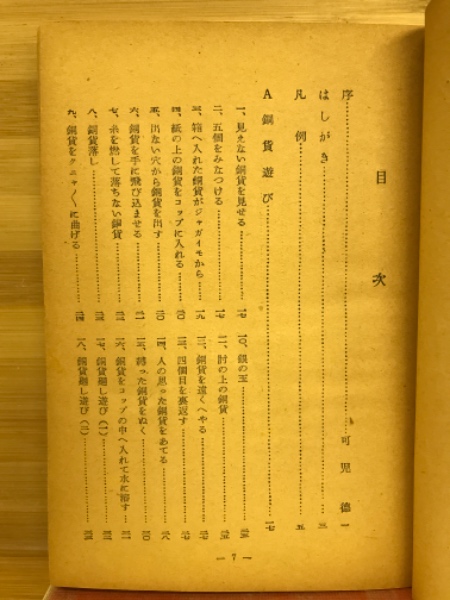 目次
序……可児徳…一
はしがき……三
凡例……五
A 銅貨遊び……一七
一、見えない銅貨を見せる……一七
二、五個をみなつける……一七
三、箱へ入れた銅貨がジャガイモから……一九
四、紙の上の銅貨をコップに入れる……二〇
五、出ない穴から銅貨を出す……二〇
六、銅貨を手に飛び込ませる……二一
七、糸を燃して落ちない銅貨……二二
八、銅貨落し……二三
九、銅貨をクニャ〳〵に曲げる……二四
一〇、銀の玉……二五
一一、肘の上の銅貨……二五
一二、銅貨を遠くへやる……二七
一三、四個目を裏返す……二七
一四、人の思った銅貨をあてる……二八
一五、縛った銅貨をぬく……三〇
一六、銅貨をコップの中へ入れて水に溶す……三一
一七、銅貨廻し遊び(一)……三二
一八、銅貨廻し遊び(二)……三三
— 7 —